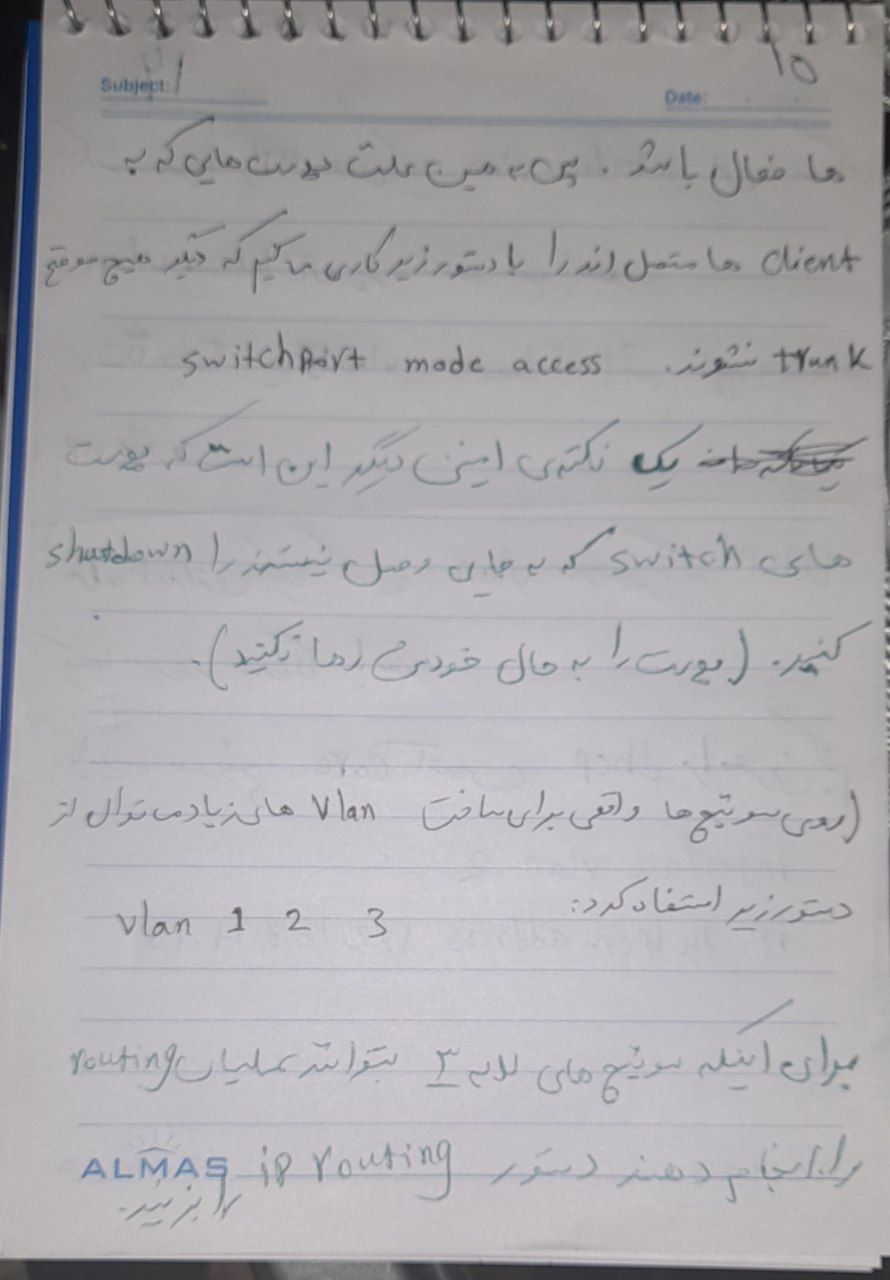 Subject: 1
Date:
15
ها فعال باشد. پس به همین علت پورت هایی که به
client ها متصل اند را با دستور زیر کاری می کنیم که دیگر هیچ موقع
trunk نشوند. switchport mode access
یک نکته‌ی امنیتی دیگر این است که پورت
های switch که به جایی وصل نیستند را shutdown
کنید. (پورت را به حال خودش رها نکنید).
(روی سوئیچ ها واقعی برای ساخت vlan های زیاد می توان از
دستور زیر استفاده کرد: vlan 1 2 3
برای اینکه سوئیچ های لایه ۳ بتوانند عملیات routing
را انجام دهند دستور ip routing
را بزنید.
ALMAS